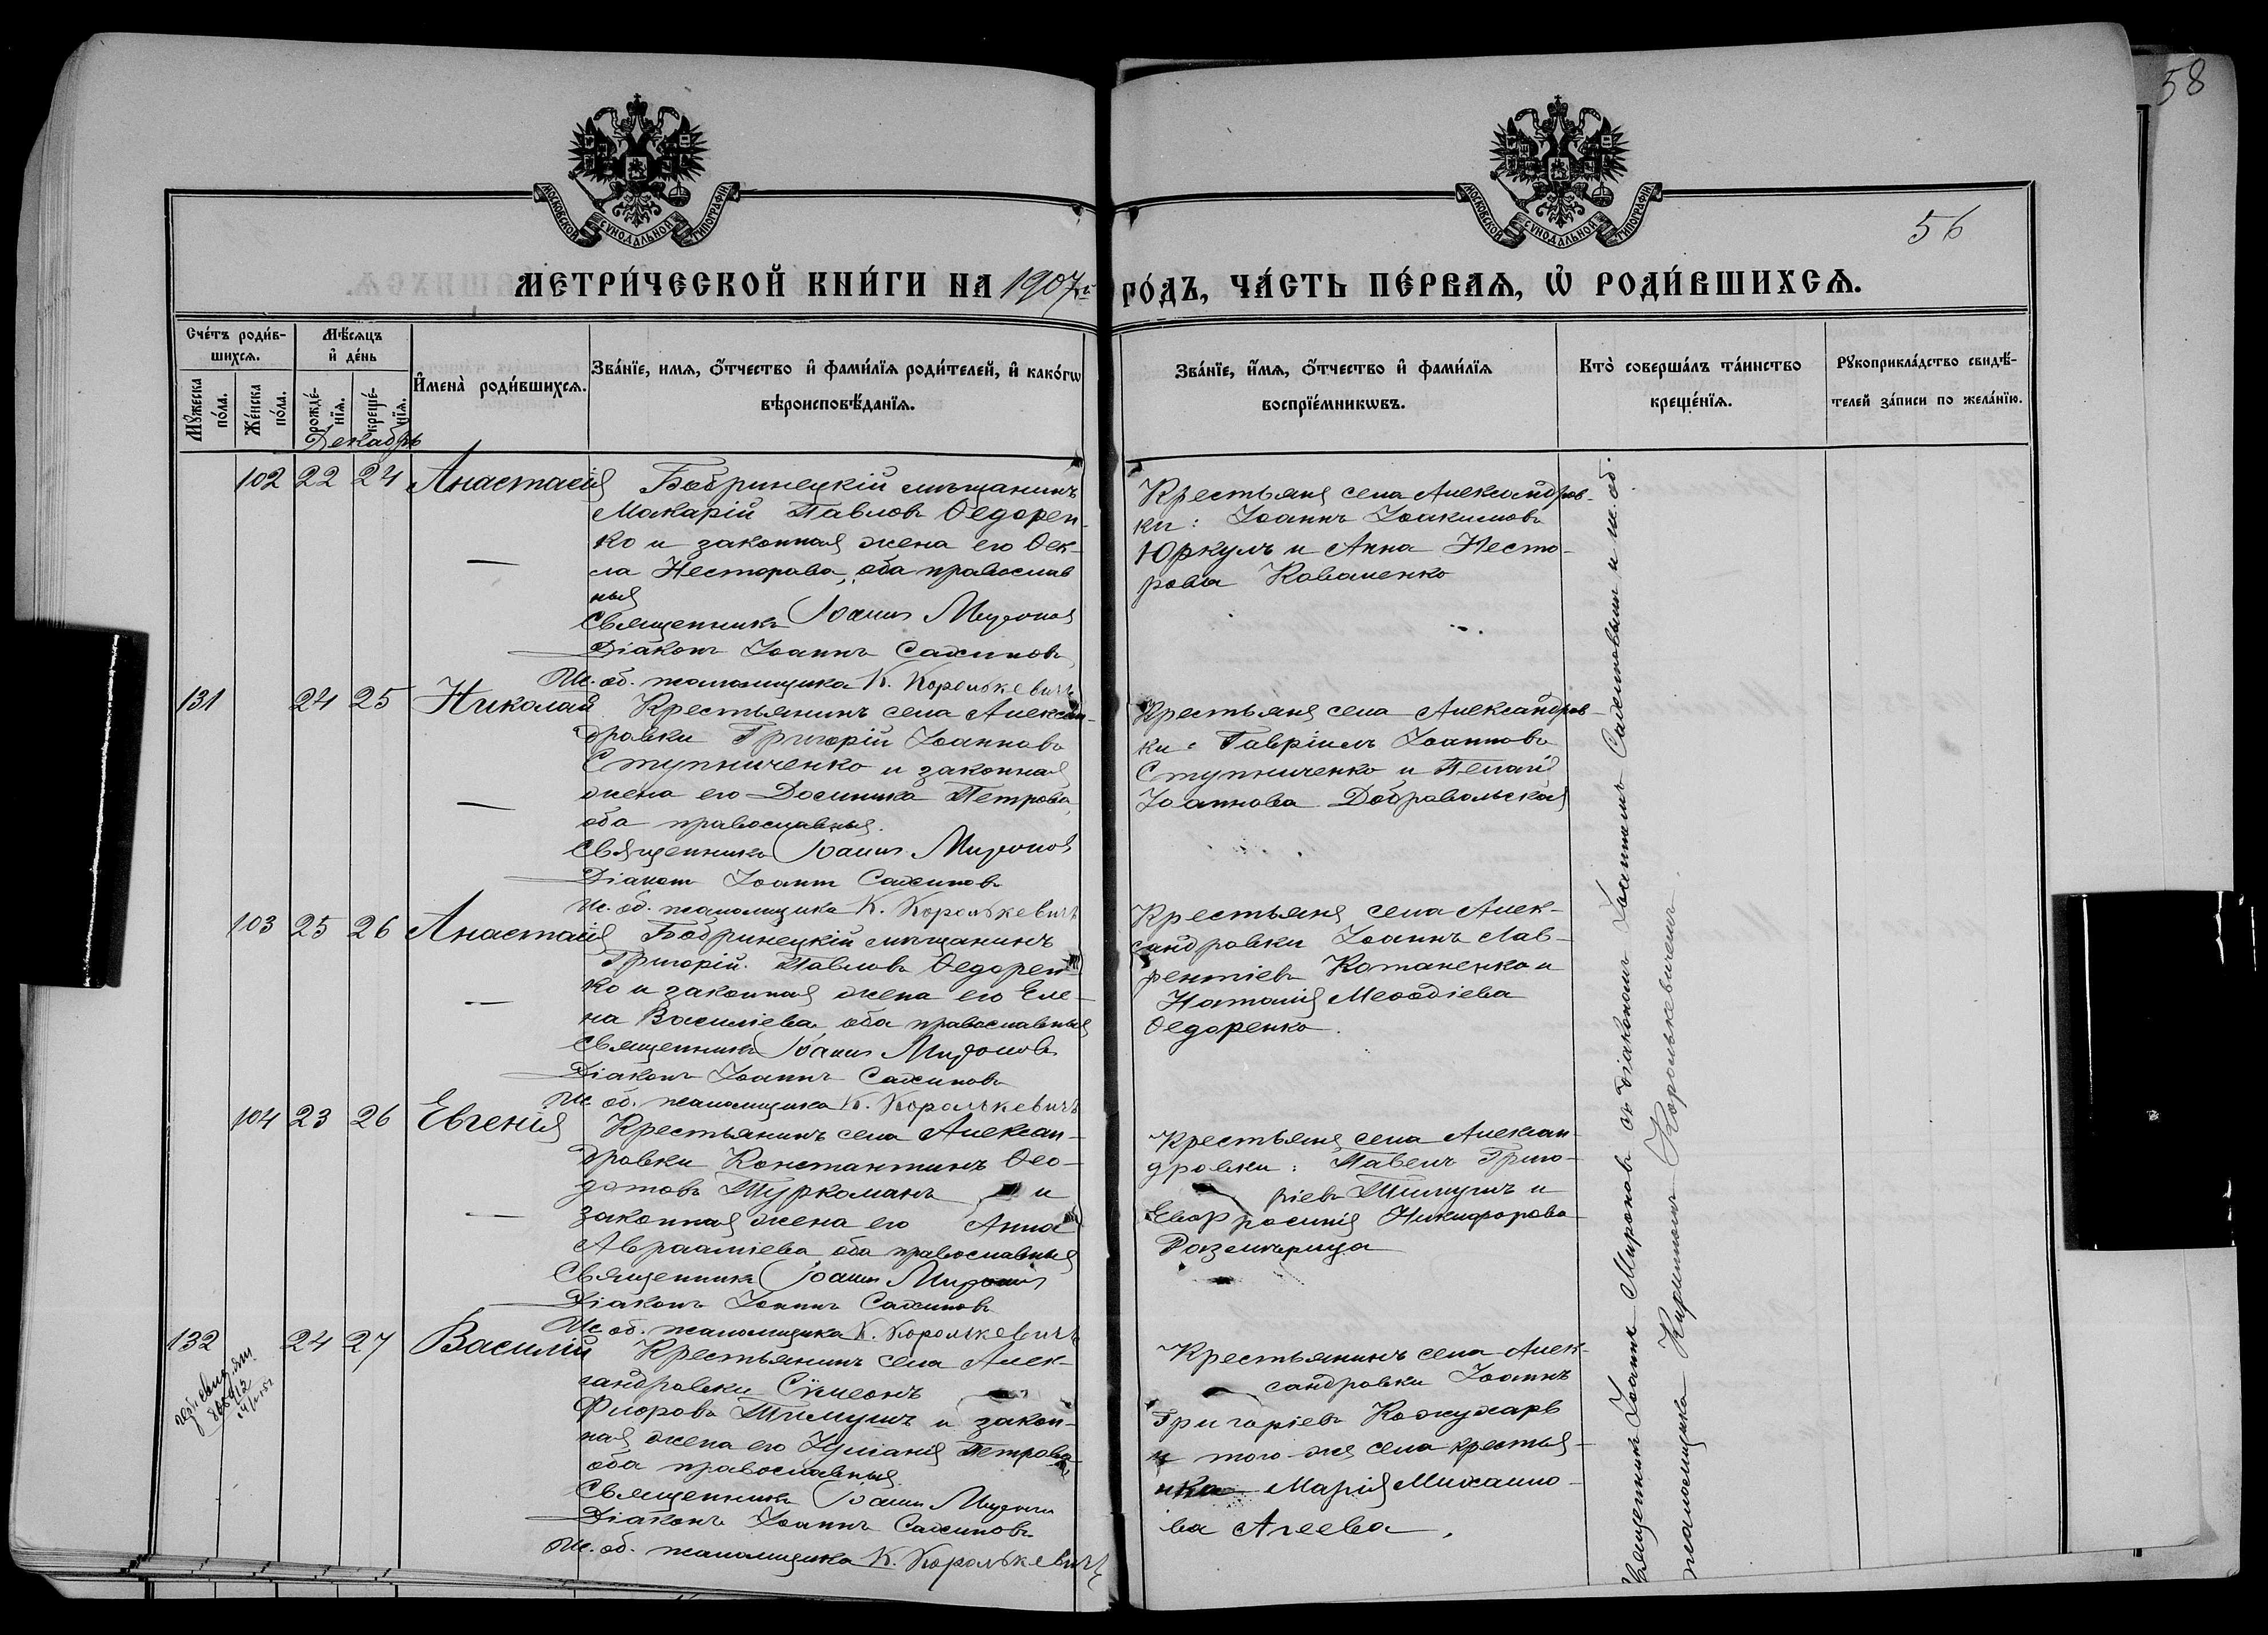 58
МОСКОВСКОЙ СѴНОДАЛЬНОЙ ТИПОГРАФІИ
МОСКОВСКОЙ СѴНОДАЛЬНОЙ ТИПОГРАФІИ
56
МЕТРИ́ЧЕСКОЙ КНИ́ГИ НА 1907й РО́ДЪ, ЧА́СТЬ ПЕ́РВАѦ, Ѡ҆ РОДИ́ВШИХСѦ.
Сче́тъ роди́в-
шихсѧ.
Мꙋ́жеска по́ла.
Же́нска по́ла.
Мѣ́сѧцъ
и҆ де́нь
рожде́-
нїѧ.
креще́-
нїѧ.
И҆мена̀ роди́вшихсѧ.
Зва́нїе, имѧ, ѻ҆́тчество и҆ фами́лїѧ роди́телей, и҆ како́гѡ
вѣроисповѣ́данїѧ.
Зва́нїе, и҆́мѧ, ѻ҆́тчество и҆ фами́лїѧ
воспрїе́мникѡвъ.
Кто̀ соверша́лъ та́инство
креще́нїѧ.
Рꙋкоприкла́дство свидѣ́-
телей за́писи по жела́нїю.
Декабрь
102 22 24 Анастасія
Бобринецкій мѣщанинъ
Макарій Павловъ Ѳедорен-
ко и законная жена его Ѳек-
ла Несторова, оба православ
ныя
Священникъ Іоаннъ Мироновъ
Діаконъ Іоаннъ Сахиповъ
И. об. псаломщика К. Королькевичъ
Крестьяне села Александров-
ки: Іоаннъ Іоакимовъ
Юркулъ и Анна Несто-
рова Коваленко
131 24 25 Николай
Крестьянинъ села Алексан-
дровки Григорій Іоанновъ
Ступниченко и законная
жена его Домника Петрова,
оба православныя.
Священникъ Іоаннъ Мироновъ
Діаконъ Іоаннъ Сахиповъ
И. об. псаломщика К. Королькевичъ
Крестьяне села Александров-
ки: Гавріилъ Іоанновъ
Ступниченко и
Іоаннова Добровольская
103 25 26 Анастасія
Бобринецкій мѣщанинъ
Григорій Павловъ Ѳедорен-
ко и законная жена его Еле-
на Василіева, оба православныя
Священникъ Іоаннъ Мироновъ
Діаконъ Іоаннъ Сахиповъ
И. об. псаломщика К. Королькевичъ
Крестьяне села Алек-
сандровки Іоаннъ Лав-
рентіевъ Котаненко и
Наталія Меѳодіева
Ѳедоренко.
104 23 26 Евгенія
Крестьянинъ села Алексан-
дровки Константинъ Ѳео-
дотовъ Туркоманъ и
законная жена его Анна
Авраамiева оба православныя
Священникъ Іоаннъ Мироновъ
Діаконъ Іоаннъ Сахиповъ
И. об. псаломщика К. Королькевичъ
Крестьяне села Алексан-
дровки: Павелъ Григо-
ріевъ Тимушъ и
Евфросинія Никифорова
132 24 27 Василій
Крестьянинъ села Алек-
сандровки Сѵмеонъ
Флоровъ Тимушъ и закон-
ная жена его Іуліанія Петрова
оба православныя.
Священникъ Іоаннъ Мироновъ
Діаконъ Іоаннъ Сахиповъ
И. об. псаломщика К. Королькевичъ
Крестьянинъ села Алек-
сандровки Іоаннъ
Григоріевъ Кожухарь
и того-же села крестья-
нка Марія Михаило-
ва Агеева.
Священникъ Іоаннъ Мироновъ съ діакономъ Іоанномъ Сахиповымъ и и. об.
псаломщика Королькевичемъ.